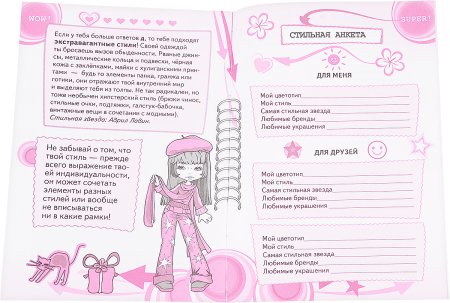 WOW!
Если у тебя больше ответов д, то тебе подходят
экстравагантные стили! Своей одеждой
ты бросаешь вызов обыденности. Рваные джин-
сы, металлические кольца и подвески, чёрная
кожа с заклёпками, майки с хулиганскими прин-
тами — будь то элементы панка, гранжа или
готики, они отражают твой внутренний мир
и выделяют тебя из толпы. Не так радикален, но
тоже необычен хипстерский стиль (брюки чинос,
стильные очки, подтяжки, галстук-бабочка,
винтажные вещи в сочетании с модными).
Стильная звезда: Аврил Лавин.
Не забывай о том, что
твой стиль — прежде
всего выражение тво-
ей индивидуальности,
он может сочетать
элементы разных
стилей или вообще
не вписываться
ни в какие рамки!
SUPER!
СТИЛЬНАЯ АНКЕТА
ДЛЯ МЕНЯ
Мой цветотип
Мой стиль
Самая стильная звезда
Любимые бренды
Любимые украшения
ДЛЯ ДРУЗЕЙ
Мой цветотип
Мой стиль
Самая стильная звезда
Любимые бренды
Любимые украшения
Мой цветотип
Мой стиль
Самая стильная звезда
Любимые бренды
Любимые украшения